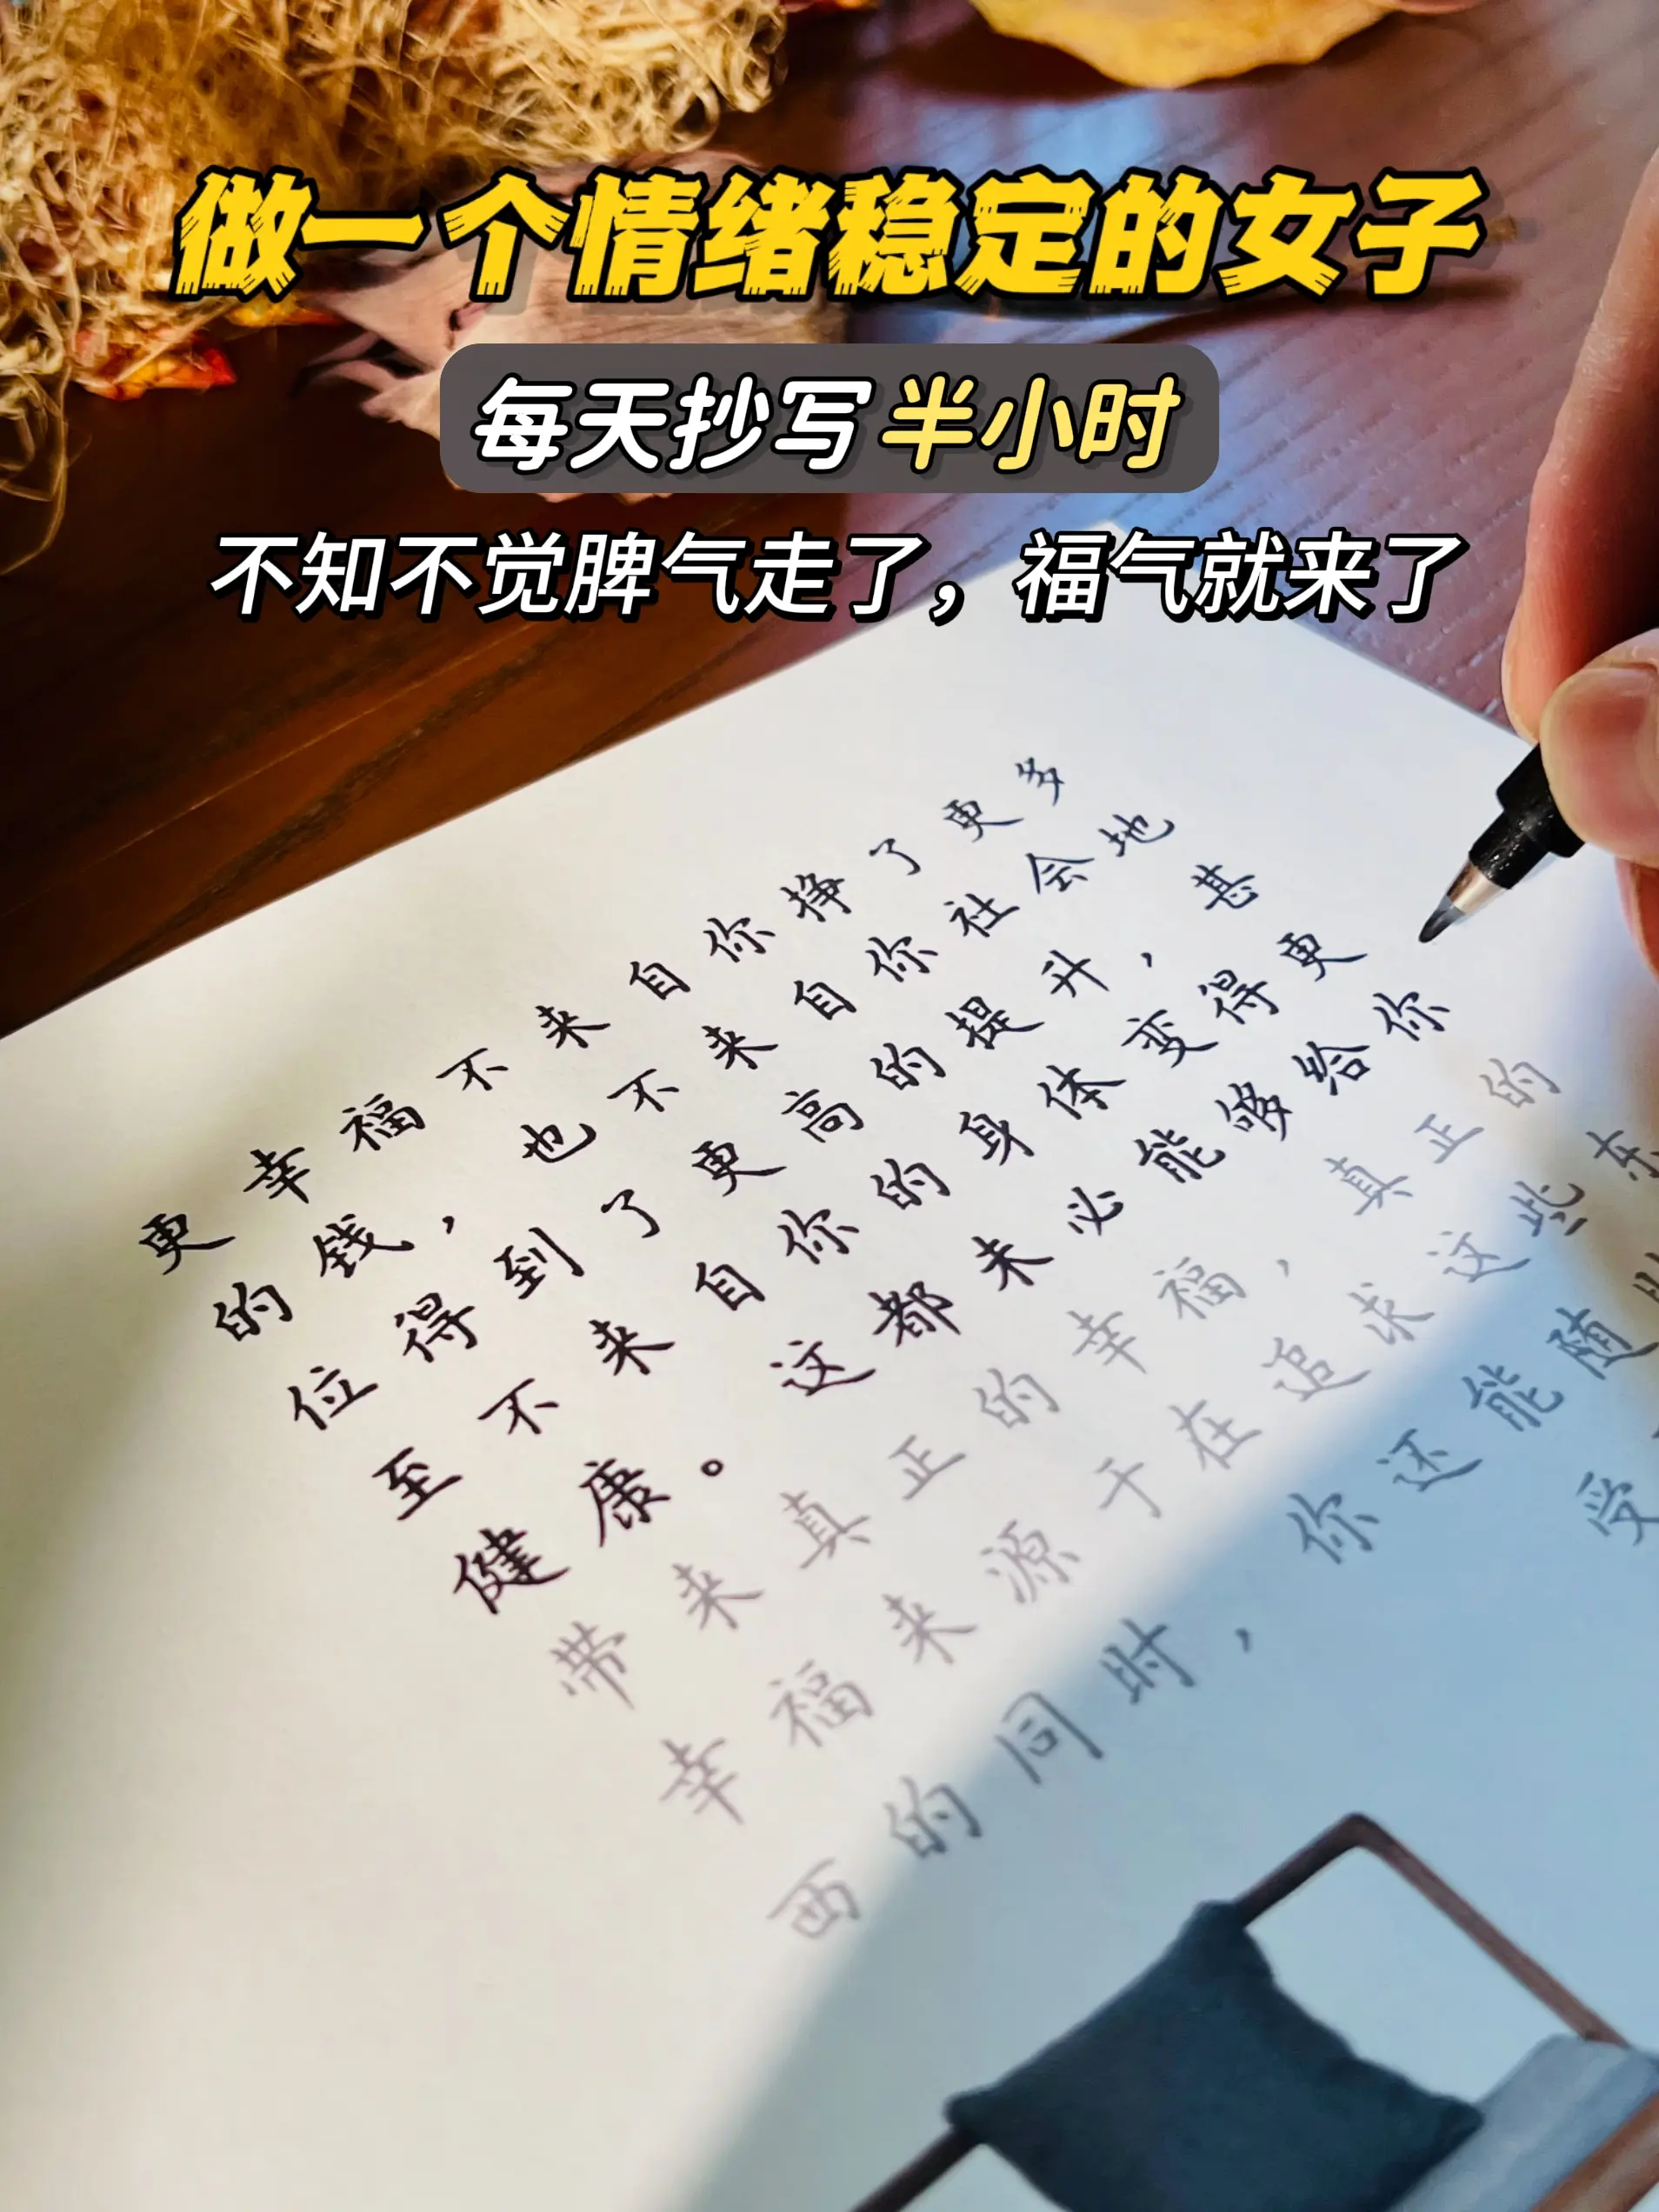 做一个情绪稳定的女子
每天抄写半小时
不知不觉脾气走了，福气就来了
更幸福不来自你挣了更多
的钱，也不来自你社会地
位得到了更高的提升，甚
至不来自你的身体变得更
健康。这都未必能够给你
带来真正的幸福，真正的
幸福来源于在追求这些东
西的同时，你还能随时
受